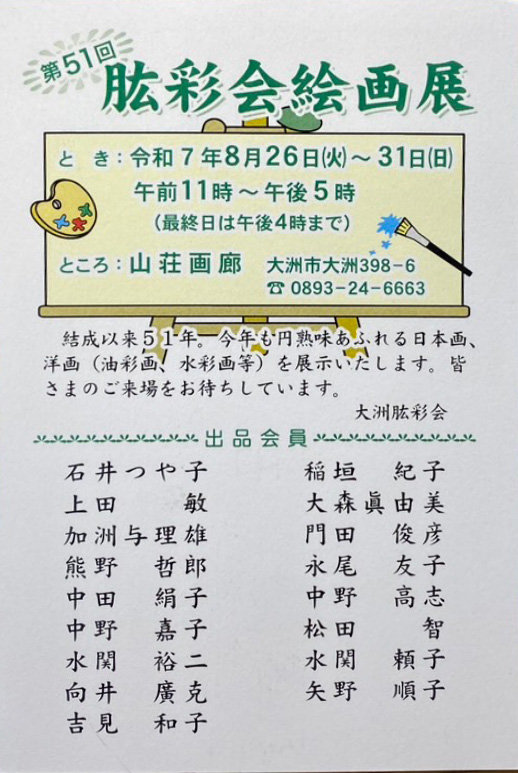 第51回
肱彩会絵画展
と き：令和７年8月26日㈫～31日㈰
午前11時～午後5時
（最終日は午後4時まで）
ところ：山荘画廊 大洲市大洲398−6
☎ 0893−24−6663
結成以来５１年。今年も円熟味あふれる日本画、
洋画（油彩画、水彩画等）を展示いたします。皆
さまのご来場をお待ちしています。
大洲肱彩会
出品会員
石井つや子
上田 敏
加洲与理雄
熊野 哲郎
中田 絹子
中野 嘉子
水関 裕二
向井 廣克
吉見 和子
稲垣 紀子
大森眞由美
門田 俊彦
永尾 友子
中野 高志
松田 智
水関 頼子
矢野 順子